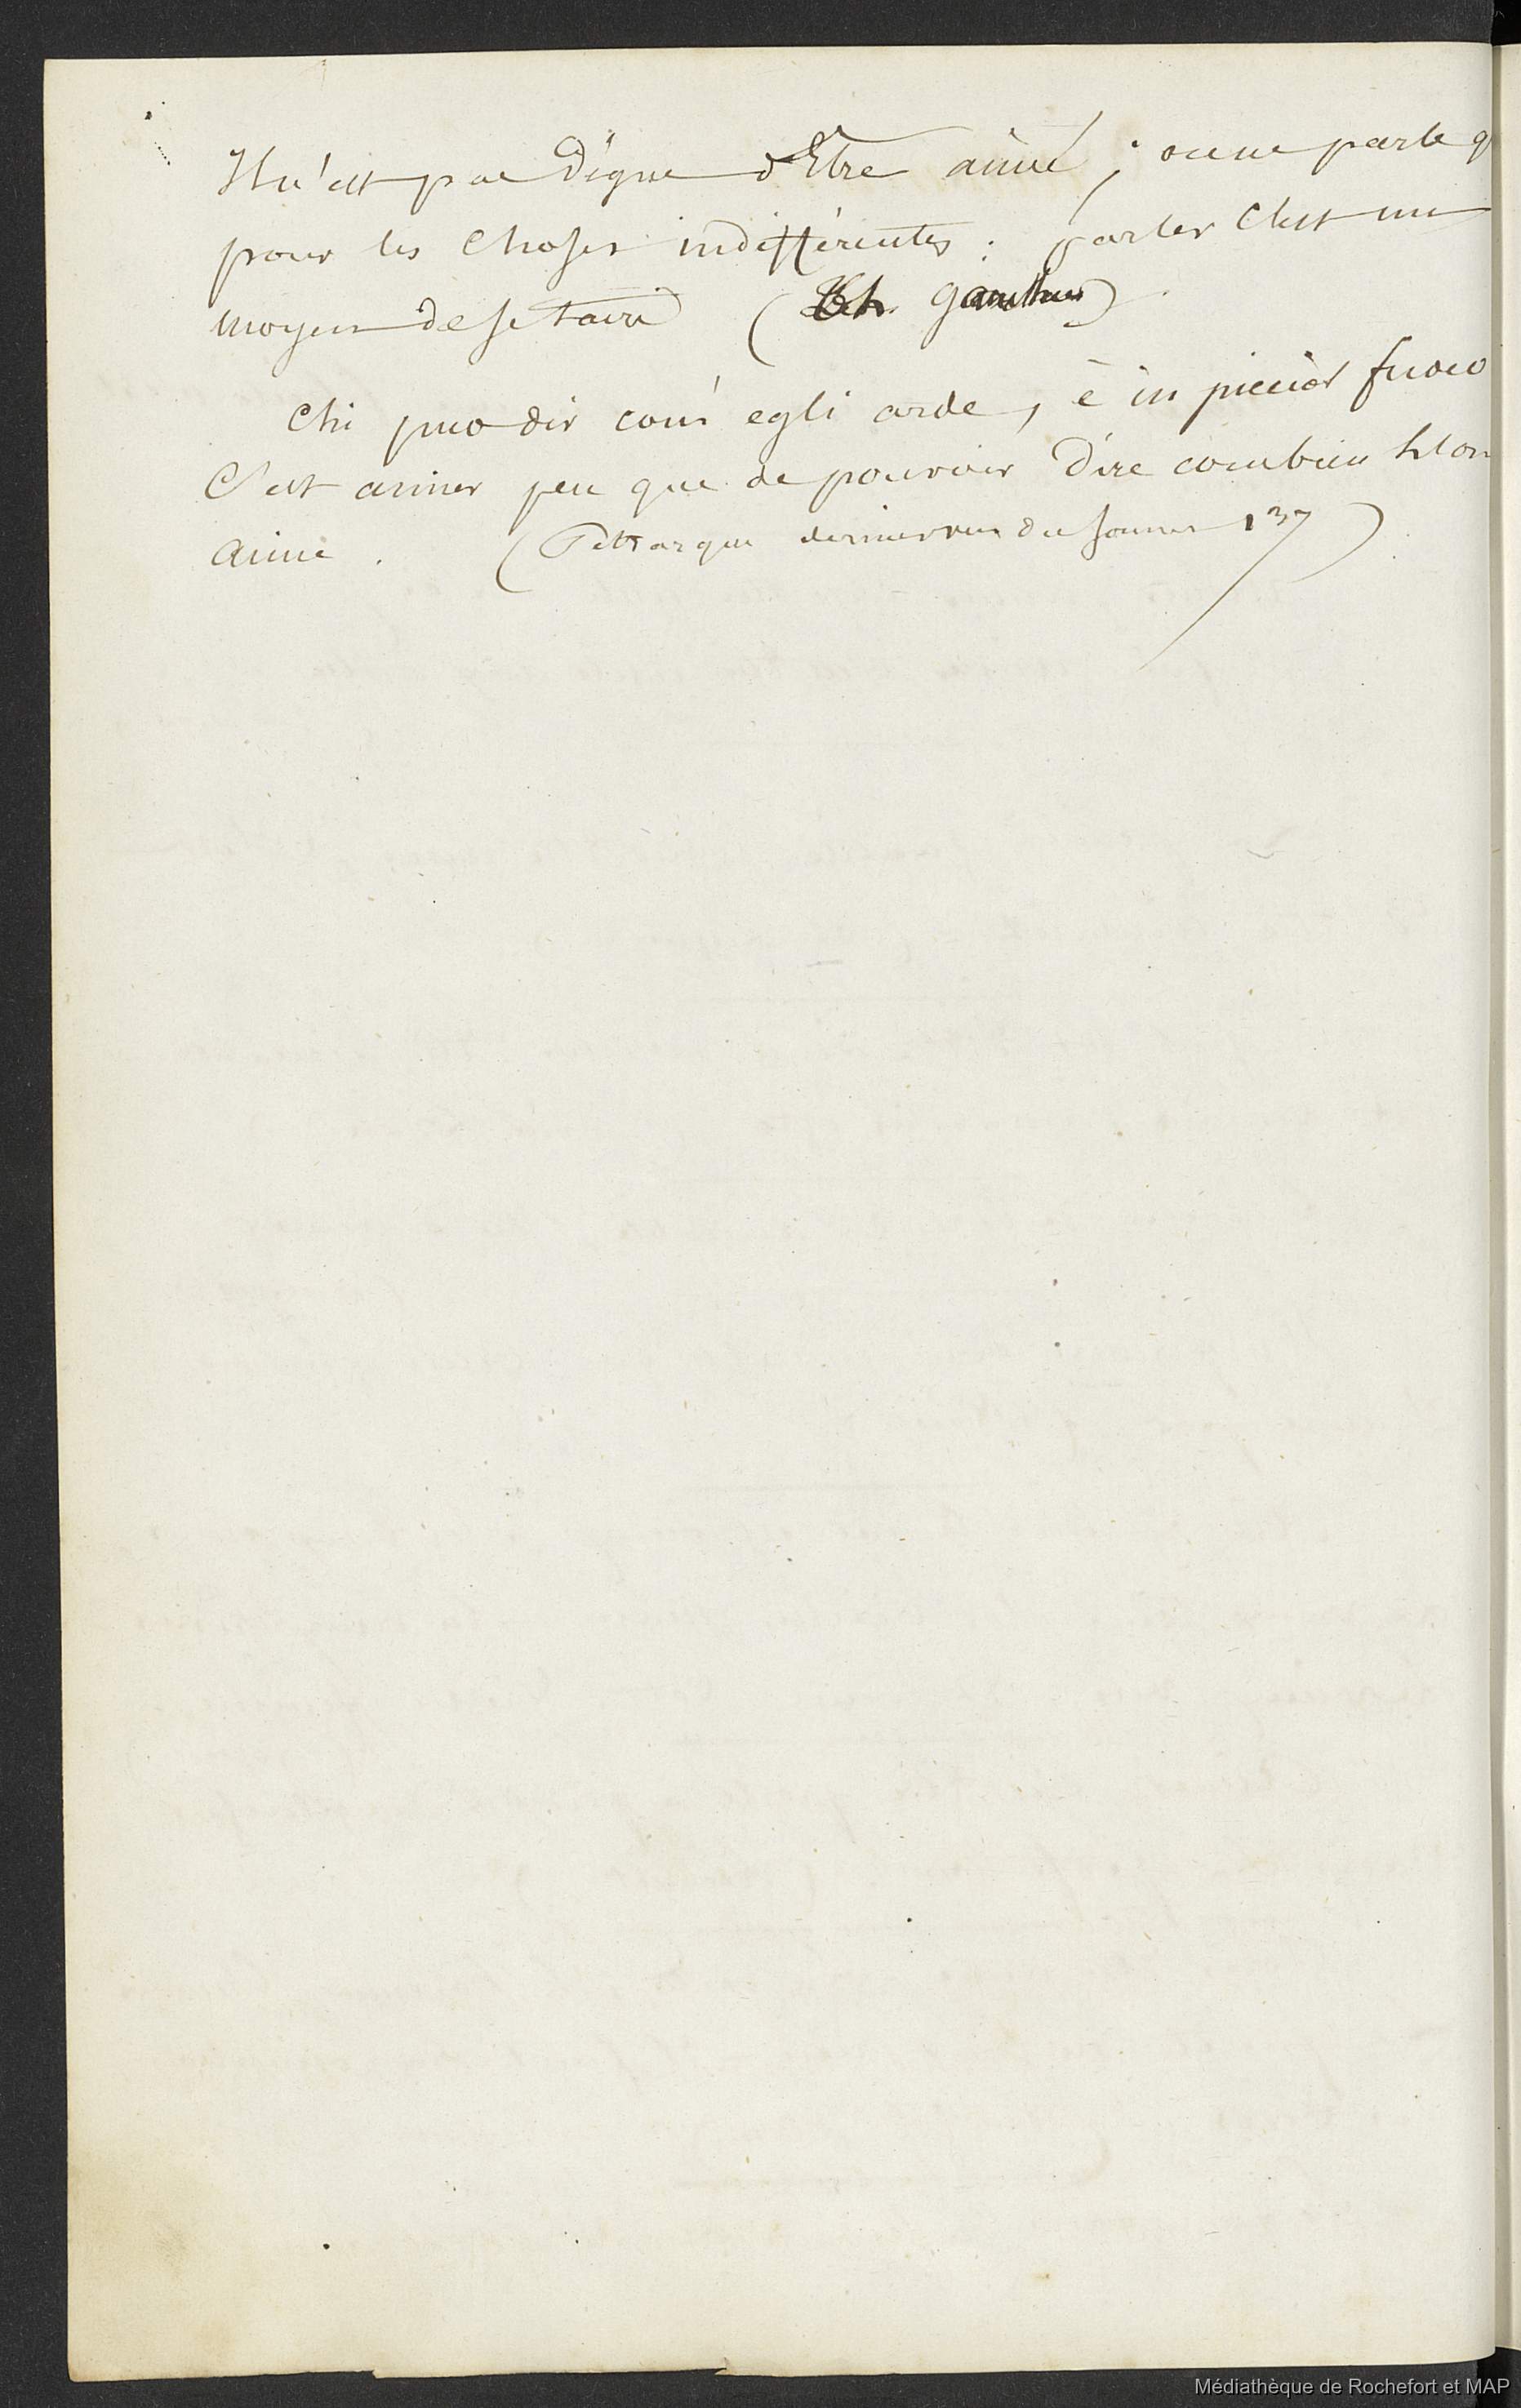 Il n'est pas digne d'Etre aimé ; on ne parle q
pour les choses indifférentes : parler c'est un
moyen de se taire (Th. Gauthier).
Chi può dir com' egli arde, è in picciol fuoco
C'est aimer peu que de pouvoir dire combien l'on
aime . (Pettarque dernier vers du sonnet 137)
Médiathèque de Rochefort et MAP